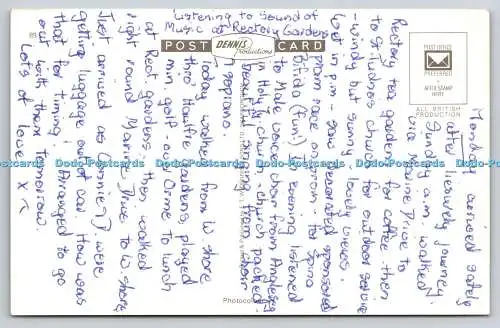 Listening to sound of
Music at Rectory Gardens
POST DENNIS Productions CARD
POST OFFICE
PREFERRED
AFFIX STAMP
HERE
ALL BRITISH
PRODUCTION
Monday arrived safely
after leisurely journey.
Sunday a.m. walked
via Marine Drive to
Rectory tea gardens for coffee then
to St Tudno's church for outdoor service
- windy but sunny lovely views.
Wet in p.m - saw decorated sponsored
pram race on prom - for
Bifida (Fun!) In evening listened
to Male voice choir from Anglesey
in Holy Trinity church - church packed
beautiful singing from choir
& soprano.
Today walked from W shore
thro' Haulfre gardens, played
min. golf on Orme to lunch
at Rest gardens then walked
right round Marine Drive to W. shore
Just arrived as Connie + D were
getting luggage out of car. How was
that for timing! Arranged to go
out with them tomorrow.
Lots of love x
Dodo-Postcards Dodo-Postcards Dodo-Postcards Dodo-Postcards Dodo-Postcards